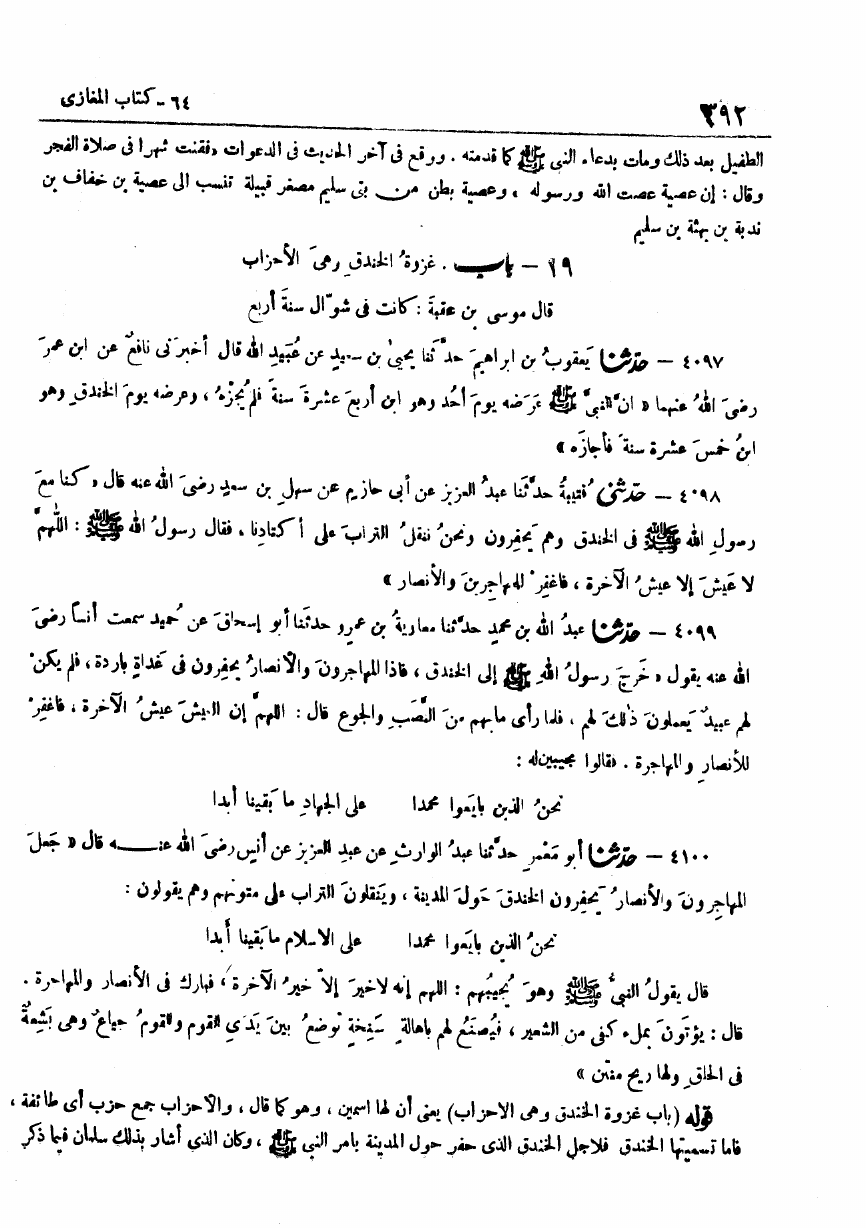 ٣٩٢
٦٤ - كتاب المغازى
الطفيل بعد ذلك ومات بدعاء النبى ﷺ كما قدمته . ووقع فى آخر الحديث فى الدعوات « فقنت شهرا فى صلاة الفجر
وقال : إن عصية عصت الله ورسوله » وعصية بطن من بنى سليم مصغر قبيلة تنسب الى عصية بن خفاف بن
ندبة بن بهثة بن سليم
١٩ – باب . غزوةُ الخندقِ وهىَ الأحزاب
قال موسى بن عقبةَ : كانت فى شوّال سنةَ أربع
٤٠٩٧ – حدّثنا يَعقوبُ بن ابراهيمَ حدَّثنا يحيىٰ بن سعيدٍ عن عُبَيدِ الله قال أخبرَنى نافعٌ عن ابن عمرَ
رضىَ اللهُ عنهما « انَّ النبىَّ ﷺ عَرَضه يومَ أحُد وهو ابن أربعَ عشرةَ سنةً فلم يُجِزْهُ ، وعرضه يومَ الخندقِ وهو
ابنُ خمسَ عشرة سنةً فأجازَه »
٤٠٩٨ – حدّثنى قُتيبةُ حدَّثنا عبدُ العزيز عن أبى حازِم عن سهلِ بن سعدٍ رضىَ الله عنه قال « كنا معَ
رسولِ الله ﷺ فى الخندق وهم يَحفِرون ونحنُ ننقلُ الترابَ على أكتادِنا ، فقال رسولُ الله ﷺ : اللّٰهمَّ
لا عَيشَ إلا عيشُ الآخرة ، فاغفِرْ للمهاجرينَ والأنصار »
٤٠٩٩ – حدّثنا عبدُ الله بن محمدٍ حدَّثنا معاويةُ بن عمرو حدثَنا أبو إسحاقَ عن حُميد سمعت أنساً رضىَ
الله عنه يقول « خَرجَ رسولُ اللهِ ﷺ إلى الخندق ، فاذا المهاجرونَ والأنصارُ يحفِرون فى غَداةٍ باردة ، فلم يكنْ
لهم عبيدٌ يَعملونَ ذٰلكَ لهم ، فلما رأى مابهم منَ النَّصَبِ والجوع قال : اللهمَّ إن العيشَ عيشُ الآخرة ، فاغفِرْ
للأنصارِ والمهاجرة . فقالوا مجيبين له :
نحنُ الذين بايَعوا محمدا على الجهادِ ما بَقينا أبدا
٤١٠٠ – حدّثنا أبو مَعْمرٍ حدَّثنا عبدُ الوارثِ عن عبدِ العزيز عن أنسٍ رضىَ الله عنـــه قال « جَعلَ
المهاجِرونَ والأنصارُ يَحفِرون الخندقَ حَولَ المدينة ، ويَنقلونَ التراب على متونهم وهم يقولون :
نحنُ الذين بايَعوا محمدا على الاسلام ما بَقينا أبدا
قال يقولُ النبىُّ ﷺ وهوَ يُجيبُهم : اللهم إنه لاخيرَ إلاّ خيرُ الآخرة ، فبارك فى الأنصار والمهاجرة .
قال : يؤتَونَ بملء كفى من الشعير ، فيُصنَعُ لهم باهالةٍ سَنِخةٍ توضعُ بينَ يَدَيِ القوم والقومُ جياعٌ وهى بَشِعةٌ
فى الحلقِ ولها ريح منتن »
قوله ( باب غزوة الخندق وهى الاحزاب ) يعنى أن لها اسمين ، وهو كما قال ، والاحزاب جمع حزب أى طائفة ،
فاما تسميتها الخندق فلاجل الخندق الذى حفر حول المدينة بامر النبى ﷺ ، وكان الذى أشار بذلك سلمان فيما ذكر